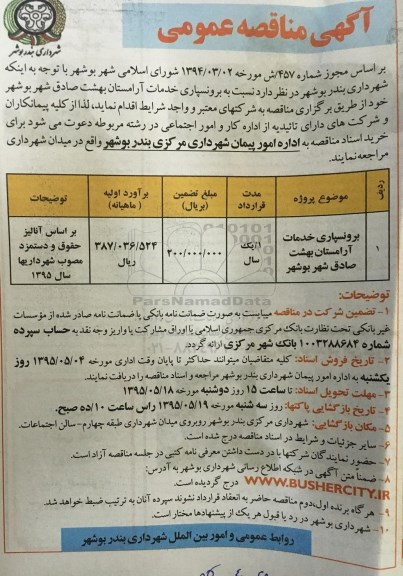 آگهی مناقصه عمومی
شهرداری بندر بوشهر
بر اساس مجوز شماره ۴۵۷/ش مورخه ۱۳۹۴/۰۳/۰۲ شورای اسلامی شهر بوشهر با توجه به اینکه
شهرداری بندر بوشهر در نظر دارد نسبت به برونسپاری خدمات آرامستان بهشت صادق شهر بوشهر
خود از طریق برگزاری مناقصه به شرکتهای معتبر و واجد شرایط اقدام نماید، لذا از کلیه پیمانکاران
و شرکت های دارای تائیدیه از اداره کار و امور اجتماعی در رشته مربوطه دعوت می شود برای
خرید اسناد مناقصه به اداره امور پیمان شهرداری مرکزی بندر بوشهر واقع در میدان شهرداری
مراجعه نمایند.
ردیف موضوع پروژه مدت قرارداد مبلغ تضمین (بریال) برآورد اولیه (ماهیانه) توضیحات
۱ برونسپاری خدمات آرامستان بهشت صادق شهر بوشهر ۱/یک سال ۲۰۰/۰۰۰/۰۰۰ ۳۸۷/۰۳۶/۵۲۴ ریال بر اساس آنالیز حقوق و دستمزد مصوب شهرداریها سال ۱۳۹۵
ParsNamadData
توضیحات:
۱- تضمین شرکت در مناقصه میبایست به صورت ضمانت نامه بانکی یا ضمانت نامه صادر شده از مؤسسات
غیر بانکی تحت نظارت بانک مرکزی جمهوری اسلامی یا اوراق مشارکت یا واریز وجه نقد به حساب سپرده
شماره ۱۰۰۳۲۸۸۶۸۴ بانک شهر مرکزی ارائه گردد.
۲- تاریخ فروش اسناد: کلیه متقاضیان میتوانند حداکثر تا پایان وقت اداری مورخه ۱۳۹۵/۰۵/۰۴ روز
یکشنبه به اداره امور پیمان شهرداری بندر بوشهر مراجعه و اسناد مناقصه را دریافت نمایند.
۳- مهلت تحویل اسناد: تا ساعت ۱۵ روز دوشنبه مورخه ۱۳۹۵/۰۵/۱۸
۴- تاریخ بازگشایی پاکتها: روز سه شنبه مورخه ۱۳۹۵/۰۵/۱۹ راس ساعت ۱۰/ده صبح.
۵- مکان بازگشایی: شهرداری مرکزی بندر بوشهر روبروی میدان شهرداری طبقه چهارم-سالن اجتماعات.
۶- سایر جزئیات و شرایط در اسناد مناقصه درج شده است.
۷- حضور نمایندگان شرکتها با در دست داشتن معرفی نامه کتبی در جلسه مناقصه آزاد است.
۸- ضمنا متن آگهی در شبکه اطلاع رسانی شهرداری بوشهر به آدرس:
WWW.BUSHERCITY.IR درج گردیده است.
۹- هر گاه برنده اول،دوم مناقصه حاضر به انعقاد قرارداد نشوند سپرده آنان به ترتیب ضبط خواهد شد.
۱۰- شهرداری بوشهر در رد یا قبول هر یک از پیشنهادها مختار است.
روابط عمومی و امور بین الملل شهرداری بندر بوشهر